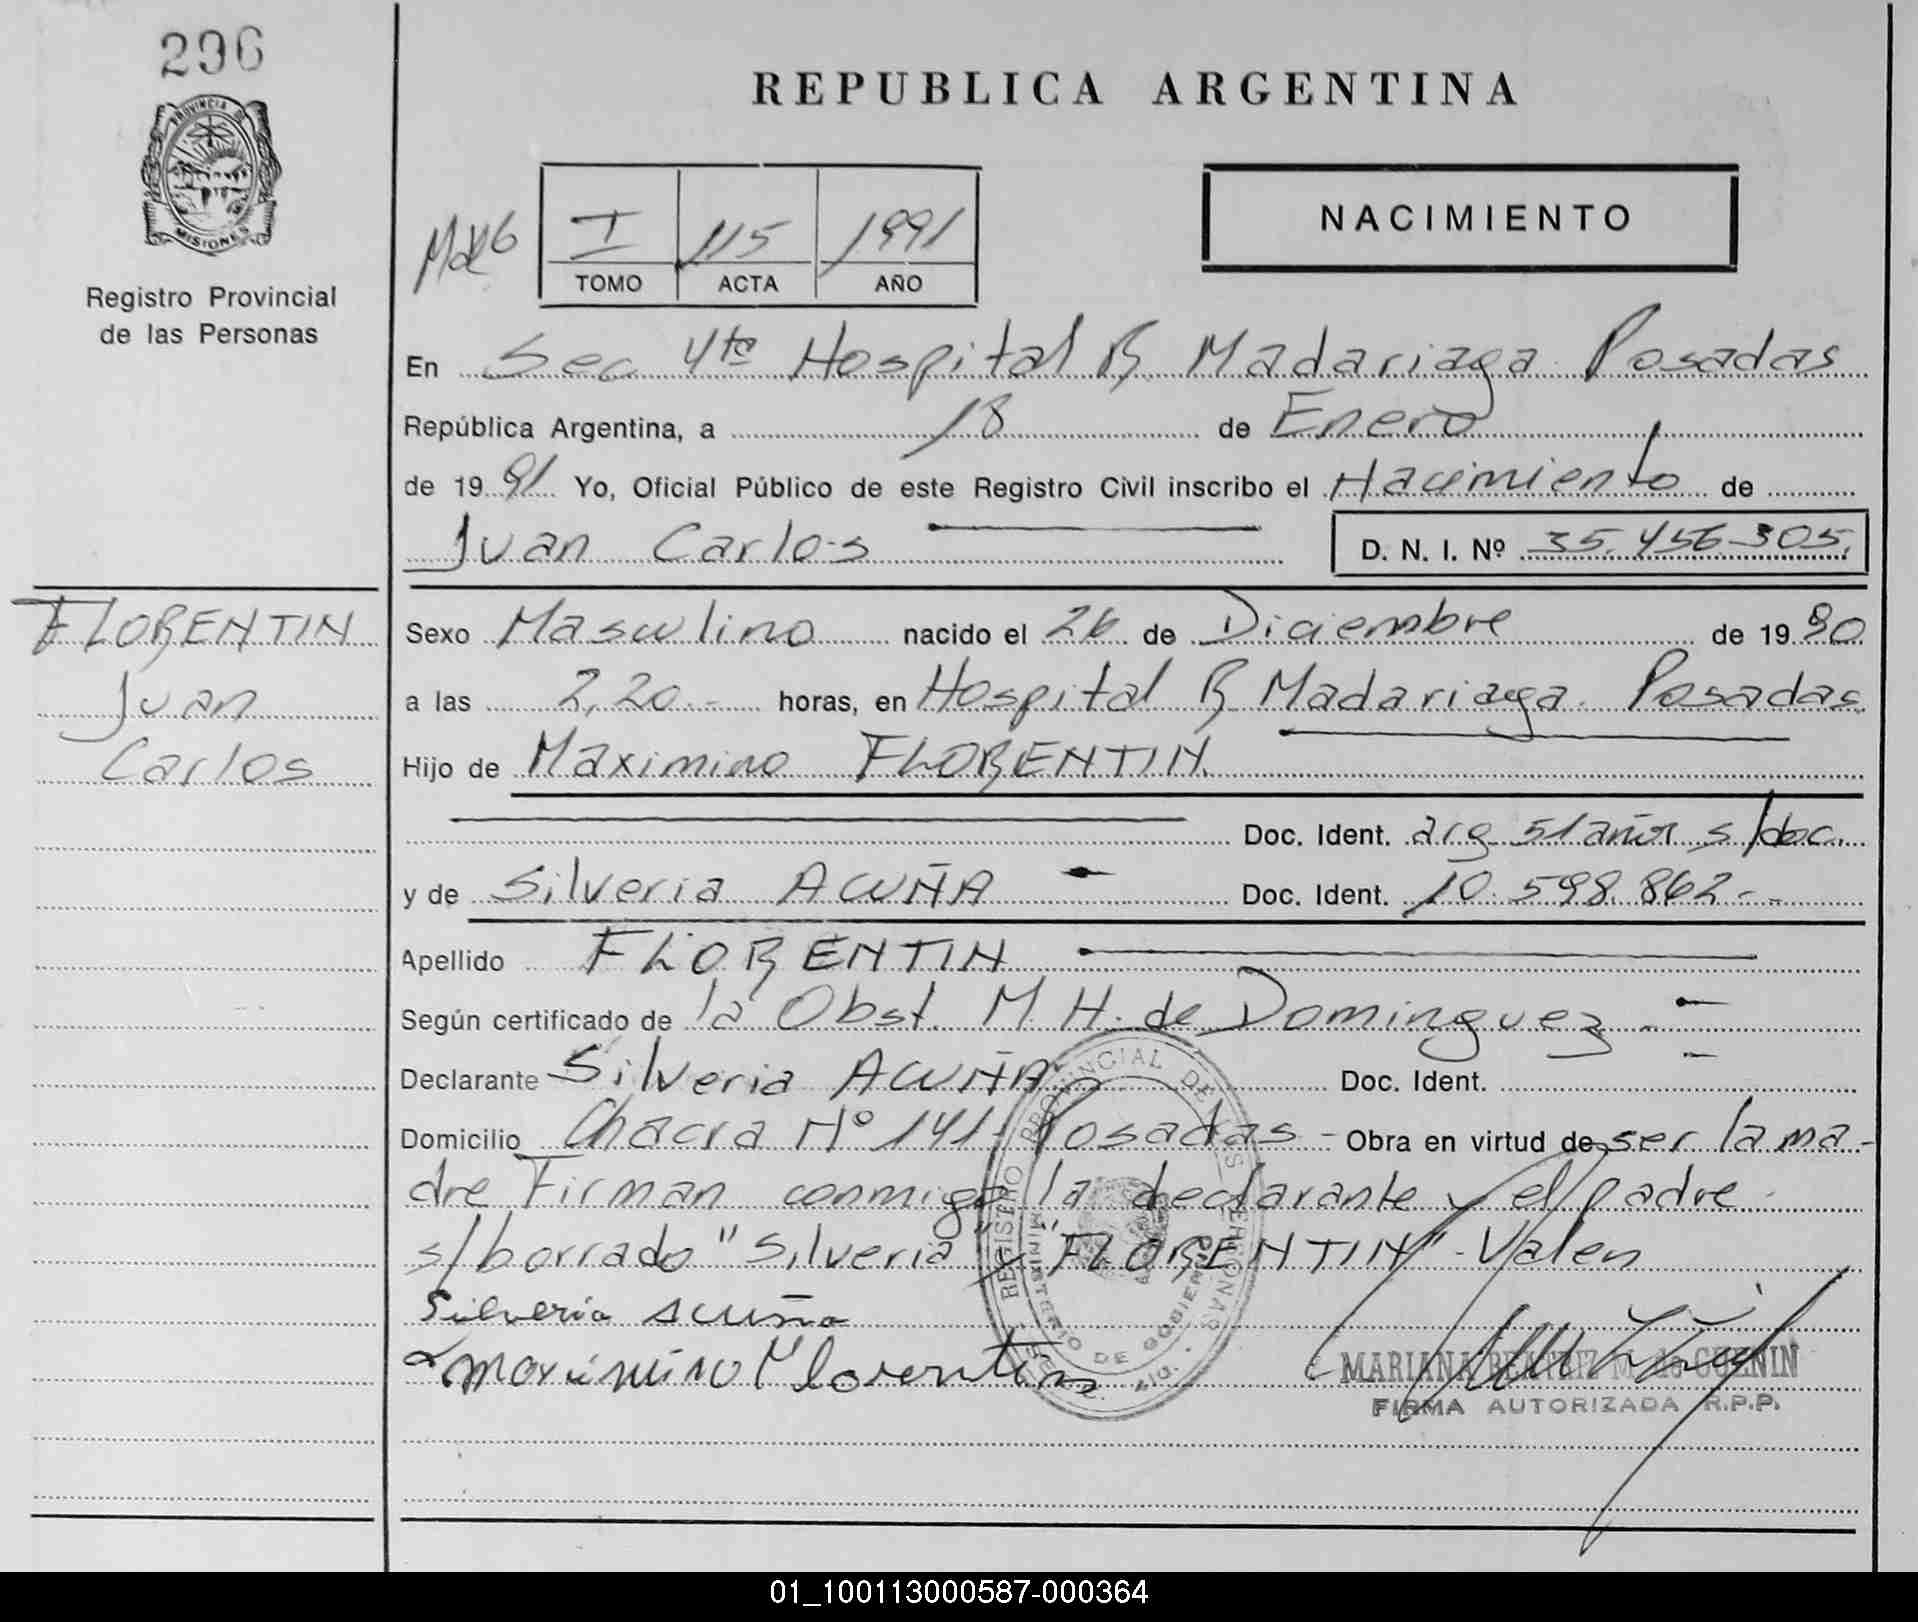 296
PROVINCIA DE
MISIONES
Registro Provincial
de las Personas
REPUBLICA ARGENTINA
I 115 1991
TOMO ACTA AÑO
NACIMIENTO
En Sec 4ta Hospital R. Madariaga Posadas
República Argentina, a 18 de Enero
de 1991 Yo, Oficial Público de este Registro Civil inscribo el Nacimiento de
Juan Carlos D. N. I. Nº 35.456.305.
FLORENTIN
Juan
Carlos
Sexo Masculino nacido el 26 de Diciembre de 1990
a las 2,20.- horas, en Hospital R. Madariaga. Posadas
Hijo de Maximino FLORENTIN.
Doc. Ident. arg. 51 años s/doc.
y de Silveria ACUÑA Doc. Ident. 10.598.862.-
Apellido FLORENTIN
Según certificado de la Obst. M. H. de Dominguez.-
Declarante Silveria ACUÑA Doc. Ident.
Domicilio Chacra Nº 141, Posadas - Obra en virtud de ser la ma-
dre Firman conmigo la declarante y el padre.
s/borrado "Silveria" y "FLORENTIN". Valen
Silveria acuña
maximino Florentin
REGISTRO PROVINCIAL DE LAS PERSONAS
MINISTERIO DE GOBIERNO
MARIANA BEATRIZ M. de GUENIN
FIRMA AUTORIZADA R.P.P.
01_100113000587-000364